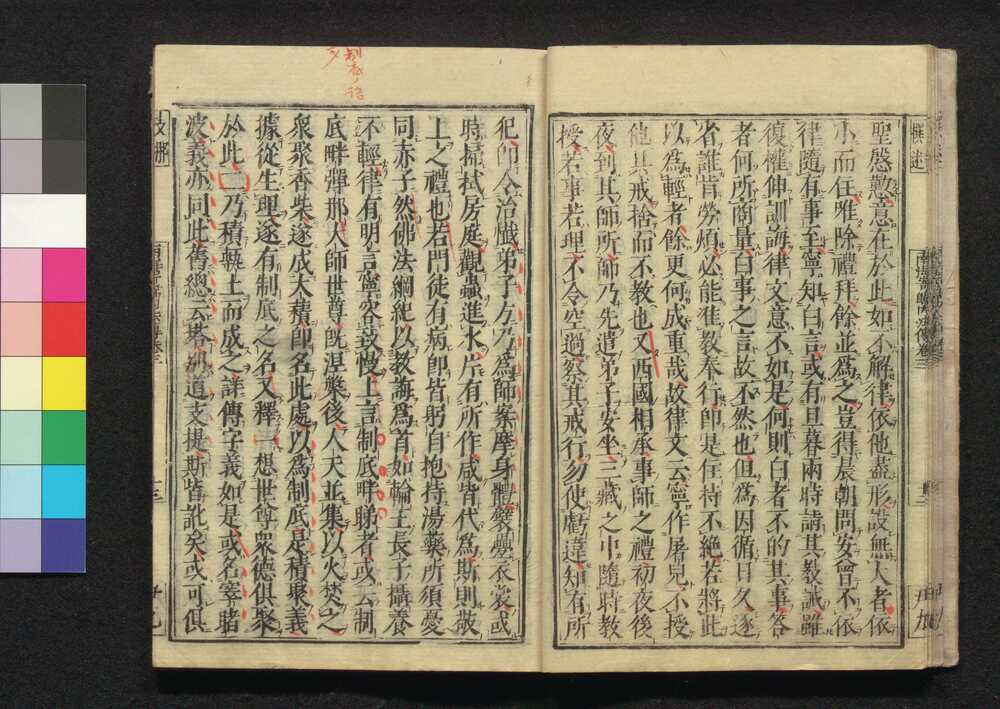 聖慇懃意在於此如不解律依他蓋形設無人者依
小而住唯除禮拜餘並爲之豈得晨朝問安曾不依
律隨有事至寧知白言或有旦暮兩時請其教誡雖
復權伸訓誨律文意不如是何則白者不的其事答
者何所商量白事之言故不然也但爲因循日久遂
省誰肯勞煩必能准教奉行即是住持不絶若將此
以爲輕者餘更何成重哉故律文云寧作屠兒不授
他具戒捨而不教也又西國相承事師之禮初夜後
夜到其師所師乃先遣弟子安坐三藏之中隨時教
授若事若理不令空過察其戒行勿使虧違知有所
犯即令治懺弟子方乃爲師案摩身體襞疊衣裳或
時掃拭房庭觀蟲進水片有所作咸皆代爲斯則敬
上之禮也若門徒有病即皆躬自抱持湯藥所須憂
同赤子然佛法綱紀以教誨爲首如輪王長子攝養
不輕律有明言寧容致慢上言制底畔睇者或云制
底畔彈那大師世尊既涅槃後人天並集以火焚之
衆聚香柴遂成大積即名此處以爲制底是積聚義
據從生理遂有制底之名又釋一想世尊衆德俱聚
於此二乃積甎土而成之詳傳字義如是或名窣睹
波義亦同此舊總云塔別道支提斯皆訛矣或可俱